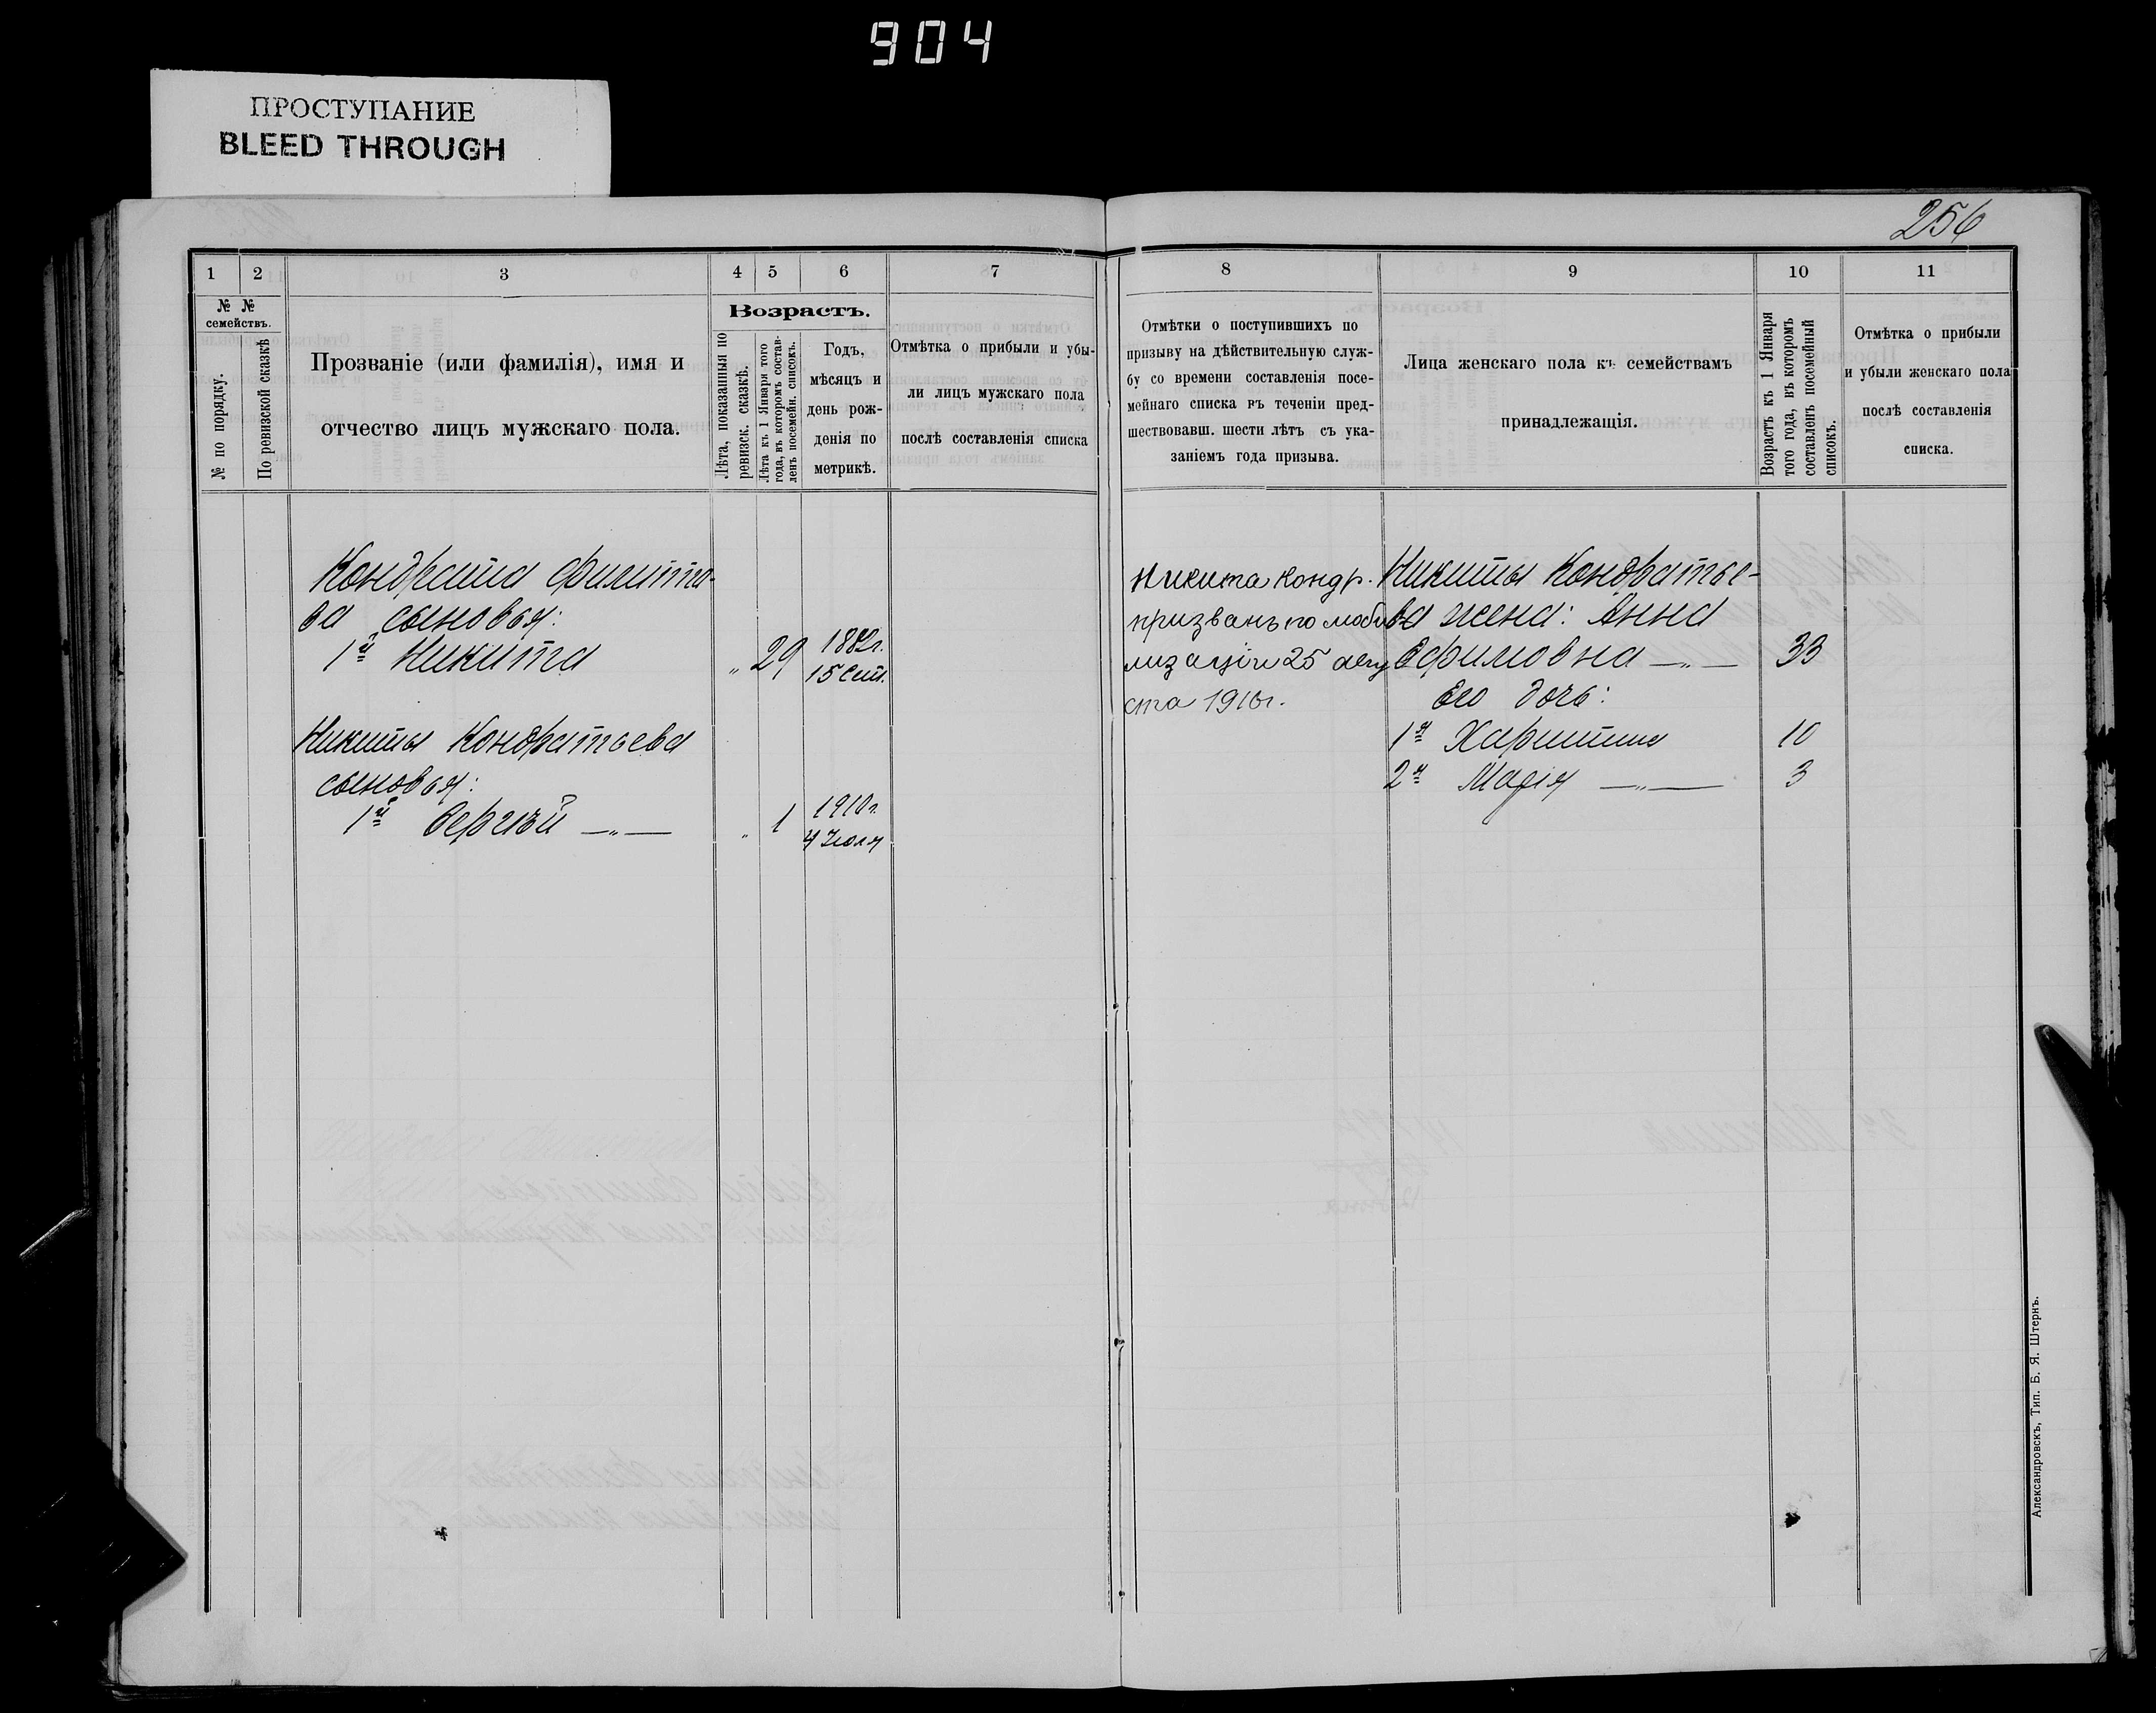 904
ПРОСТУПАНИЕ
BLEED THROUGH
256
1 2 3 4 5 6 7
№ №
семействъ.
№ по порядку.
По ревизской сказкѣ
Прозваніе (или фамилія), имя и
отчество лицъ мужскаго пола.
Возрастъ.
Лѣта, показанныя по
ревизск. сказкѣ.
Лѣта къ 1 Января того
года, въ которомъ состав-
ленъ посемейн. списокъ.
Годъ,
мѣсяцъ и
день рож-
денія по
метрикѣ.
Отмѣтка о прибыли и убы-
ли лицъ мужскаго пола
послѣ составленія списка
Кондрата Филиппо-
ва сыновья:
1й Никита „ 29 1882г.
15 Сент.
Никиты Кондратьева
сыновья:
1й Сергѣй —„— „ 1 1910г.
4 Іюля
8 9 10 11
Отмѣтки о поступившихъ по
призыву на дѣйствительную служ-
бу со времени составленія посе-
мейнаго списка въ теченіи пред-
шествовавш. шести лѣтъ съ ука-
заніемъ года призыва.
Лица женскаго пола къ семействамъ
принадлежащія.
Возрастъ къ 1 Января
того года, въ которомъ
составленъ посемейный
списокъ.
Отмѣтка о прибыли
и убыли женскаго пола
послѣ составленія
списка.
Никита Кондр.
призванъ по моби
лизаціи 25 авгу
ста 1916г.
Никиты Кондратье-
ва жена: Анна
Ефимовна —„— 33
Его дочь:
1я Харитина 10
2я Марія —„— 3
Александровскъ, Тип. Б. Я. Штернъ.